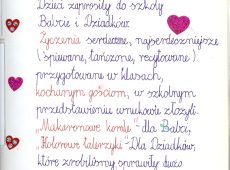 Dzieci zaprosiły do szkoły
Babcie i Dziadków.
Życzenia serdeczne, najserdeczniejsze
(śpiewane, tańczone, recytowane)
przygotowane w klasach,
kochanym gościom, w szkolnym
przedstawieniu wnukowie złożyli.
„Makaronowe korale" dla Babci,
„Kolorowe talerzyki" Dla Dziadków,
które zrobiliśmy sprawiły dużo